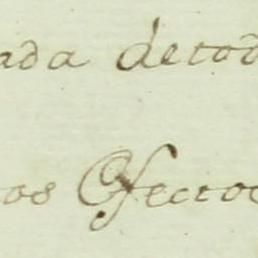 ada de tod
os Efectos